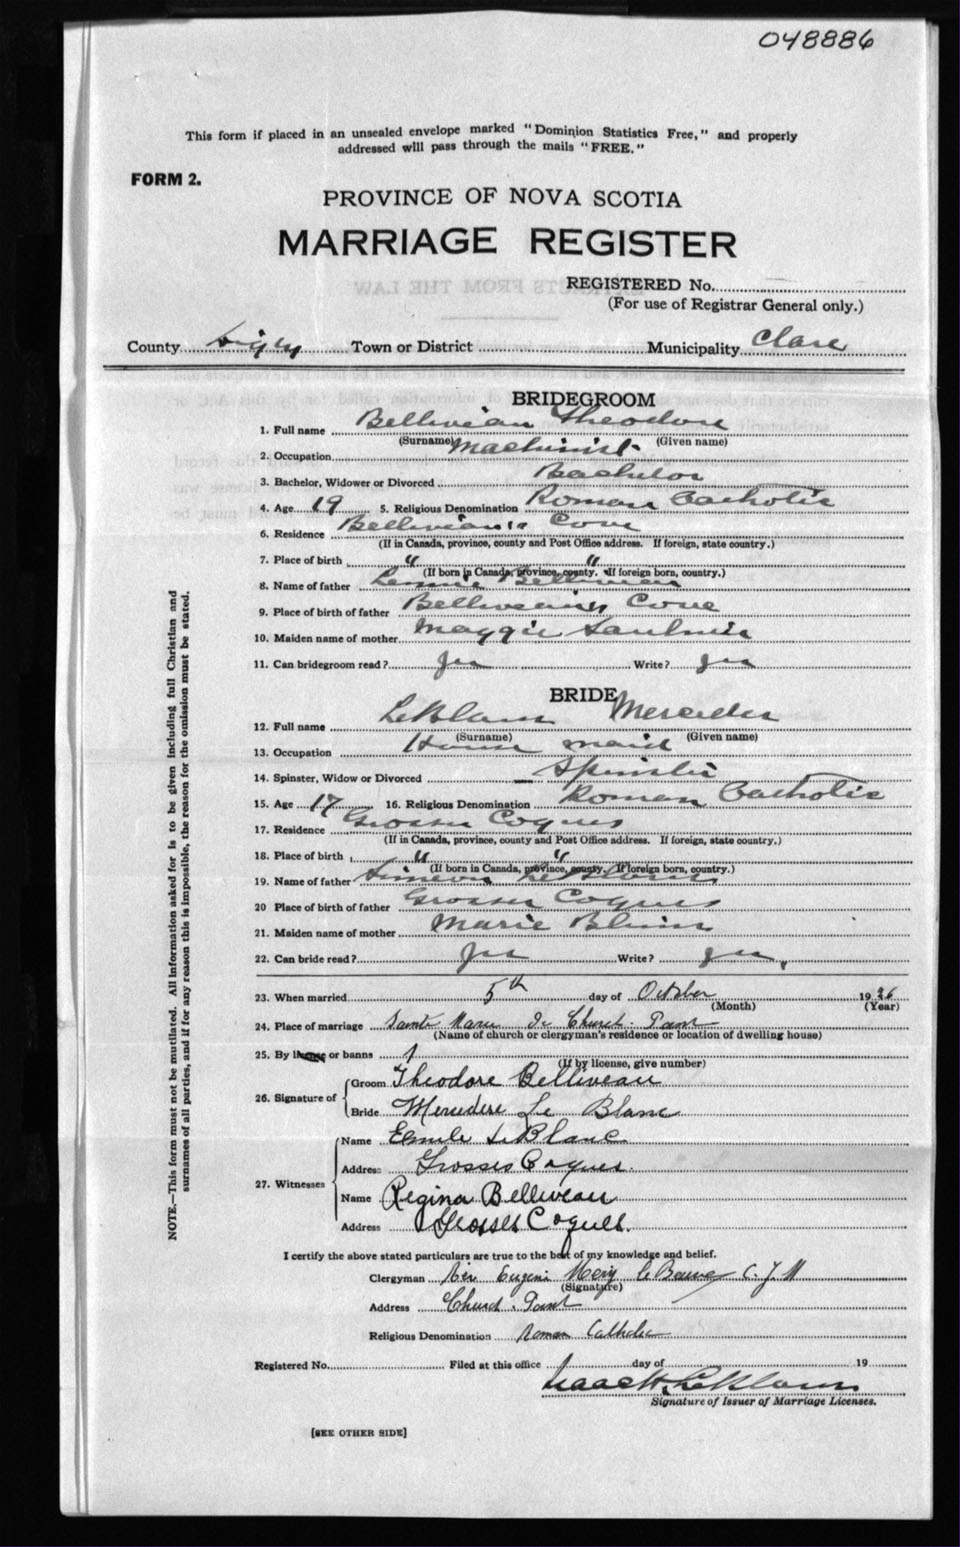 048886
This form if placed in an unsealed envelope marked "Dominion Statistics Free," and properly
addressed will pass through the mails "FREE."
FORM 2.
PROVINCE OF NOVA SCOTIA
MARRIAGE REGISTER
REGISTERED No.
(For use of Registrar General only.)
County Digby Town or District Municipality Clare
BRIDEGROOM
1. Full name Belliveau Theodore
(Surname) (Given name)
2. Occupation Machinist
3. Bachelor, Widower or Divorced Bachelor
4. Age 19 5. Religious Denomination Roman Catholic
6. Residence Belliveau's Cove
(If in Canada, province, county and Post Office address. If foreign, state country.)
7. Place of birth " "
(If born in Canada, province, county. If foreign born, country.)
8. Name of father Belliveau
9. Place of birth of father Belliveau's Cove
10. Maiden name of mother Maggie Saulnier
11. Can bridegroom read? Yes Write? Yes
BRIDE
12. Full name LeBlanc Mercedes
(Surname) (Given name)
13. Occupation House maid
14. Spinster, Widow or Divorced Spinster
15. Age 17 16. Religious Denomination Roman Catholic
17. Residence Grosses Coques
(If in Canada, province, county and Post Office address. If foreign, state country.)
18. Place of birth " "
(If born in Canada, province, county. If foreign born, country.)
19. Name of father Simeon LeBlanc
20 Place of birth of father Grosses Coques
21. Maiden name of mother Marie
22. Can bride read? Yes Write? Yes,
23. When married 5th day of October 1926
(Month) (Year)
24. Place of marriage Church Point
(Name of church or clergyman's residence or location of dwelling house)
25. By license or banns 1
(If by license, give number)
26. Signature of
Groom Theodore Belliveau
Bride Mercedere Le Blanc
27. Witnesses
Name Emile LeBlanc
Address Grosses Coques.
Name Regina Belliveau
Address Grosses Coques.
I certify the above stated particulars are true to the best of my knowledge and belief.
Clergyman Rev Eugene C. J. M
(Signature)
Address Church Point
Religious Denomination Roman Catholic
Registered No. Filed at this office day of 19
Isaac H. LeBlanc
Signature of Issuer of Marriage Licenses.
[SEE OTHER SIDE]
NOTE.—This form must not be mutilated. All information asked for is to be given including full Christian and
surnames of all parties, and if for any reason this is impossible, the reason for the omission must be stated.